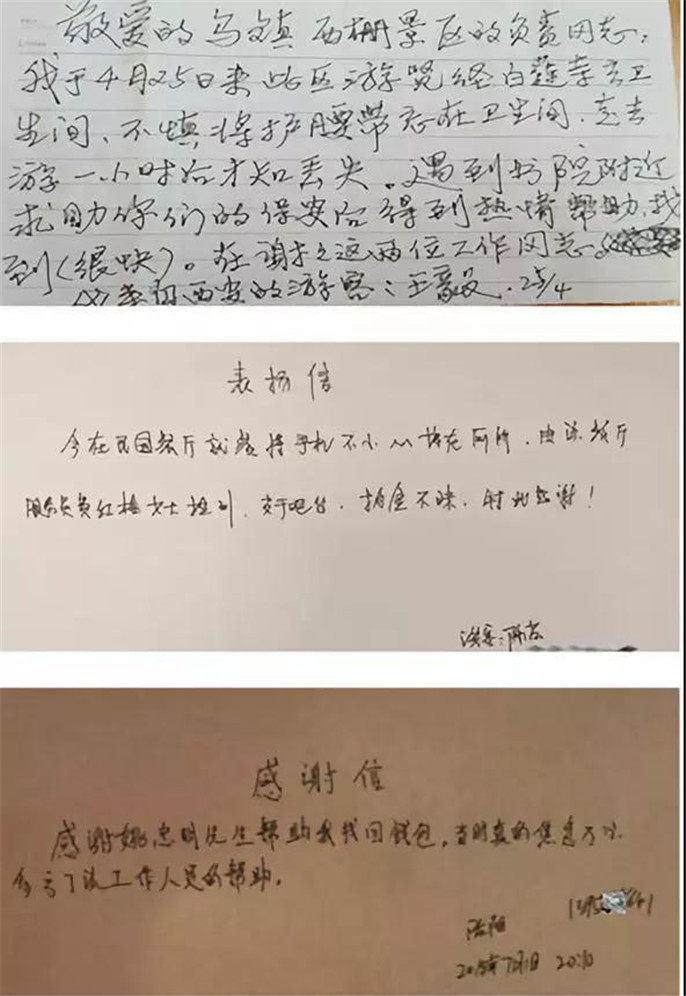 敬爱的乌镇西栅景区的负责同志：
我于4月25日来此区游览经白莲寺去卫
生间、不慎将护腰带忘在卫生间，走去
游了一小时后才知丢失。遇到书院附近
求助你们的保安后得到热情帮助，找
到（很快）。在谢之这两位工作同志。
西安的游客：王毅 25/4
表扬信
今在民国餐厅就餐将手机不小心掉在厕所，由该餐厅
服务员黄红梅女士捡到，交于吧台，拾金不昧，特此感谢！
游客：
感谢信
感谢姚忠明先生帮助我找回钱包，当时真的焦急万分
多亏了该工作人员的帮助。
陆阳
20:10